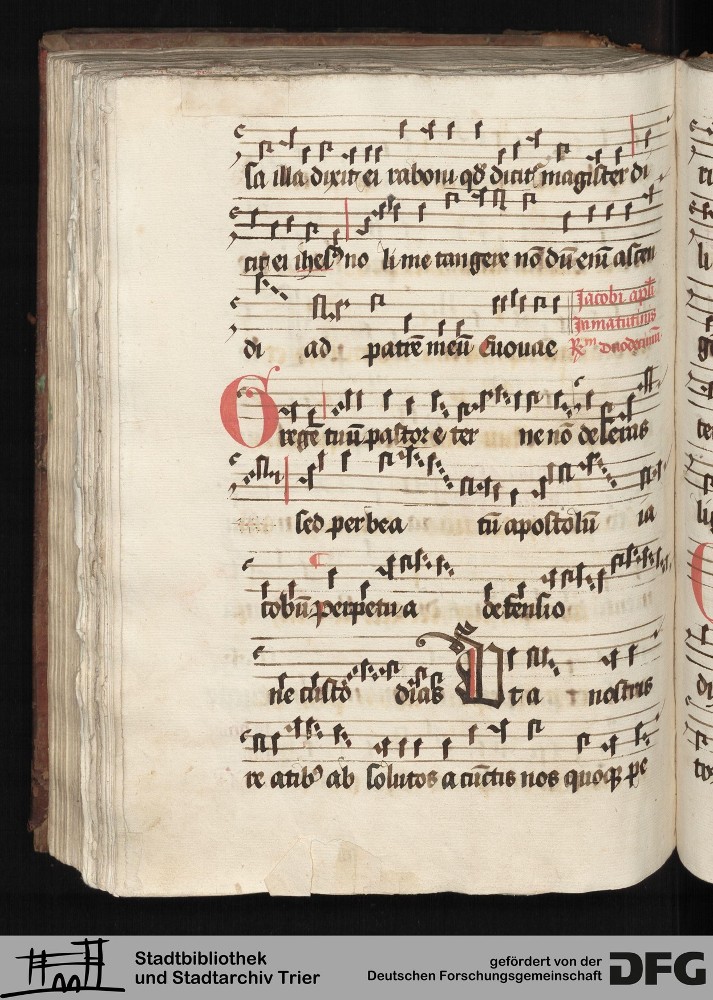 sa illa dixit ei raboni qd̕ dicit᷒ magister di
cit ei ihesꝰ no li me tangere nō dū em̄ ascen
di ad patrē meū Euouae
Jacobi apl̄i
In matutinis
Gregē tuū pastor e ter ne nō deseras
sed per bea tū apostolū ia
cobū perpetu a defensio
ne custo dias Ut a nostris
re atibꝰ ab solutos a cūctis nos quoqꝫ pe
Stadtbibliothek
und Stadtarchiv Trier
gefördert von der
Deutschen Forschungsgemeinschaft
DFG